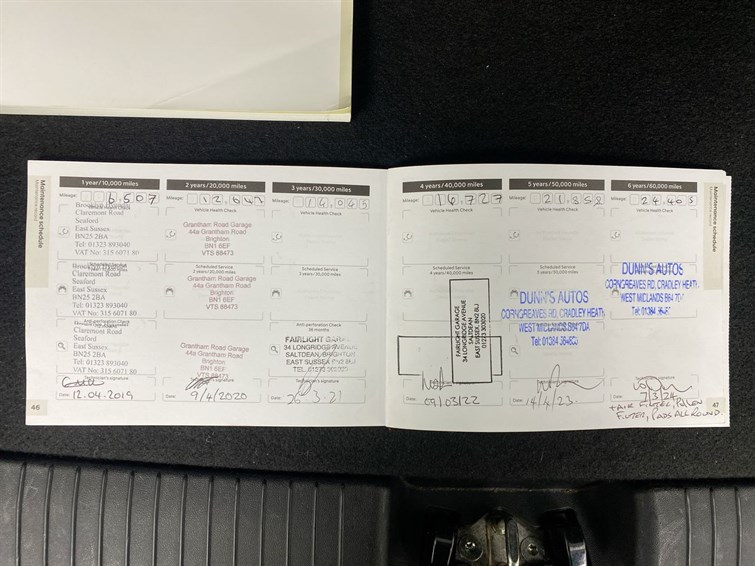 Maintenance schedule
1 year/10,000 miles
Mileage: 6,507
Vehicle Health Check
Claremont Road
Seaford
East Sussex
BN25 2BA
Tel: 01323 893040
VAT No: 315 6071 80
Claremont Road
Seaford
East Sussex
BN25 2BA
Tel: 01323 893040
VAT No: 315 6071 80
Claremont Road
Seaford
East Sussex
BN25 2BA
Tel: 01323 893040
VAT No: 315 6071 80
Date: 12.04.2019
46
2 years/20,000 miles
Mileage:
Vehicle Health Check
Grantham Road Garage
44a Grantham Road
Brighton
BN1 6EF
VTS 88473
Scheduled Service
2 years/20,000 miles
Grantham Road Garage
44a Grantham Road
Brighton
BN1 6EF
VTS 88473
Grantham Road Garage
44a Grantham Road
Brighton
BN1 6EF
VTS 88473
Technician's signature
Date: 9/4/2020
3 years/30,000 miles
Mileage: 14,045
Vehicle Health Check
Scheduled Service
3 years/30,000 miles
Anti-perforation Check
36 months
FAIRLIGHT
34 LONGRIDGE AVENUE
SALTDEAN, BRIGHTON
EAST SUSSEX
Technician's signature
Date: 26-3-21
4 years/40,000 miles
Mileage: 16,727
Vehicle Health Check
Scheduled Service
4 years/40,000 miles
FAIRLIGHT GARAGE
34 LONGRIDGE AVENUE
SALTDEAN
EAST SUSSEX BN2 8LJ
Technician's signature
Date: 07/03/22
5 years/50,000 miles
Mileage: 21,858
Vehicle Health Check
Scheduled Service
5 years/50,000 miles
DUNN'S AUTOS
CORNGREAVES RD, CRADLEY HEATH
WEST MIDLANDS B64 7DA
Technician's signature
Date: 14/4/23.
6 years/60,000 miles
Mileage: 24,405
Vehicle Health Check
DUNN'S AUTOS
CORNGREAVES RD, CRADLEY HEATH
WEST MIDLANDS
Technician's signature
Date: 7/3/24
+ AIR FILTER, POLLEN
FILTER, PADS ALL ROUND
47
Maintenance schedule